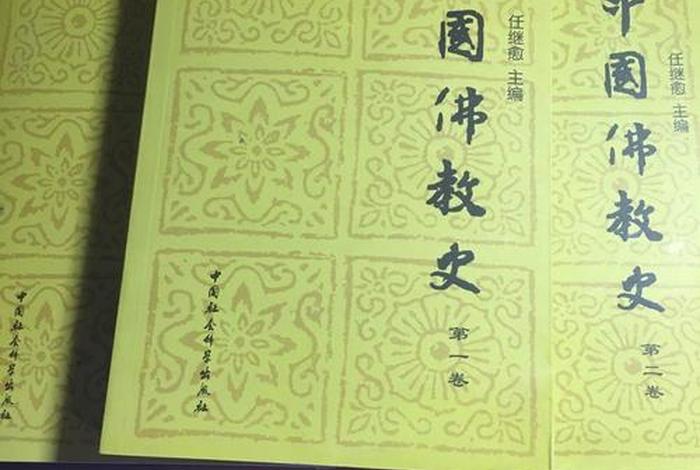 國佛教史
任继愈 主编
第一卷
中国社会科学出版社
中國佛教史
任继愈 主编
第二卷
中国社会科学出版社